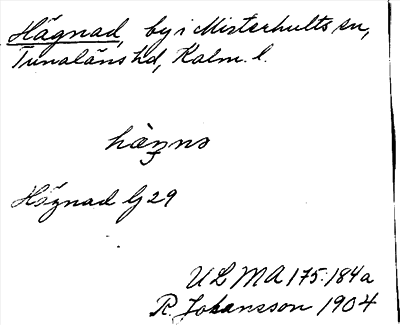 Hägnad, by i Misterhults sn,
Tunaläns hd, Kalm. l.
hàŋnə
Hägnad Gj 29
ULMA 175:184a
R. Johansson 1904